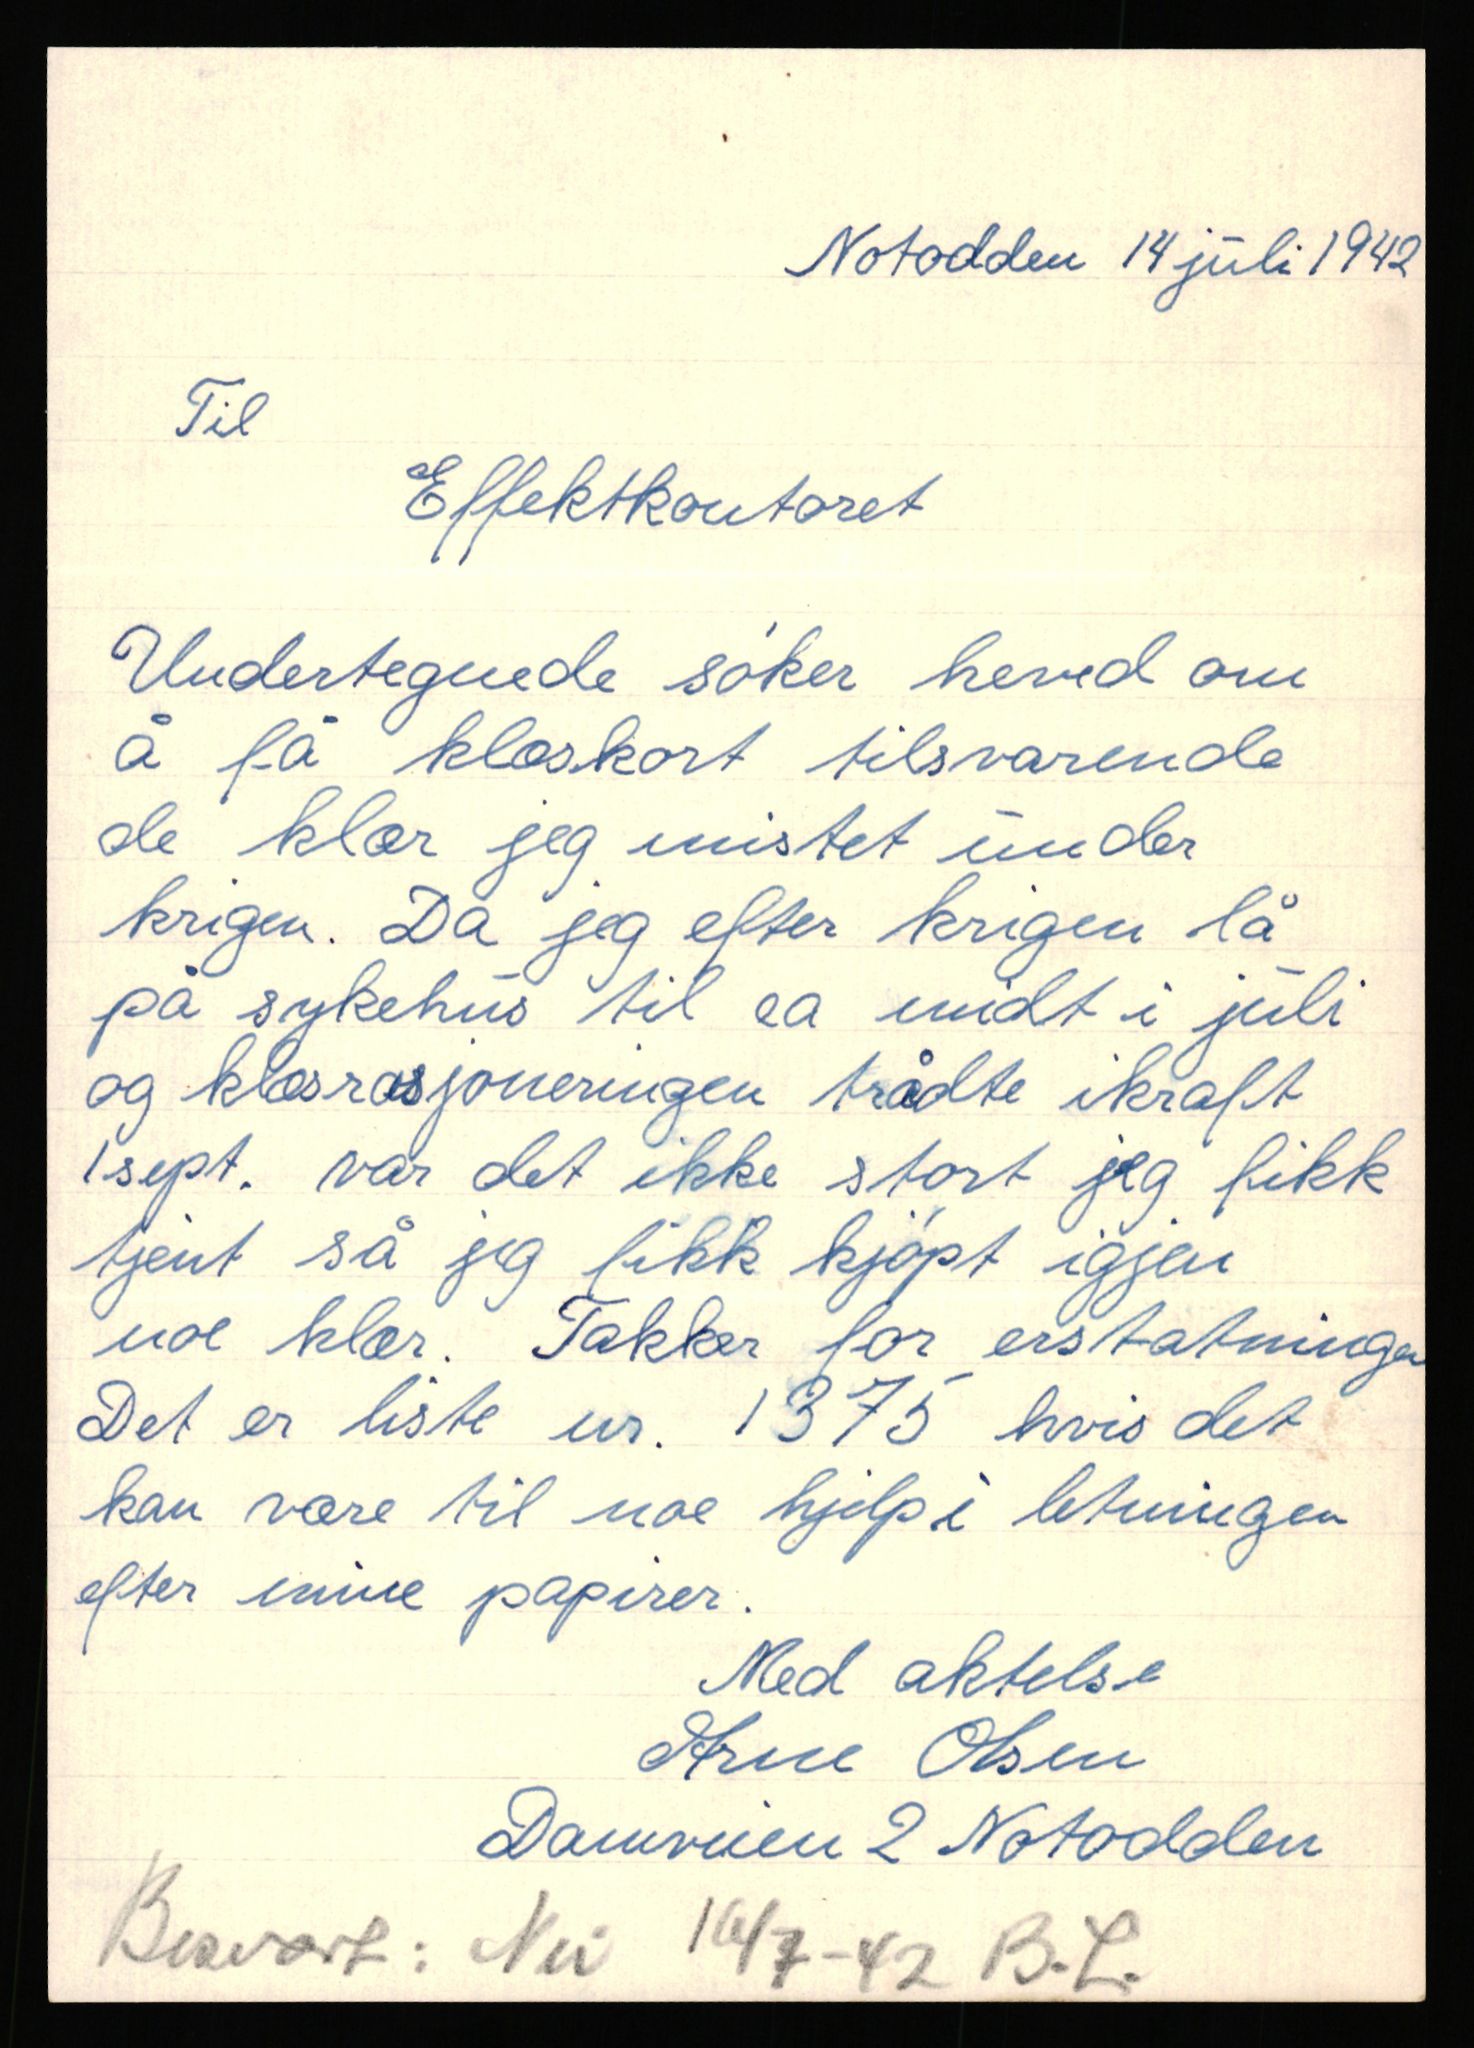 Notodden 14 juli 1942
Til
Effektkontoret
Undertegnede söker herved om
å få klæskort tilsvarende
de klær jeg mistet under
krigen. Da jeg efter krigen lå
på sykehus til ca midt i juli
og klæsrasjoneringen trådte ikraft
1 sept. var det ikke stort jeg fikk
tjent så jeg fikk kjöpt igjen
noe klær. Takker for erstatningen
Det er liste nr. 1375 hvis det
kan være til noe hjelp i letningen
efter mine papirer.
Med aktelse
Arne Olsen
Damveien 2 Notodden
Besvart: Nei 16/7-42 B.L.